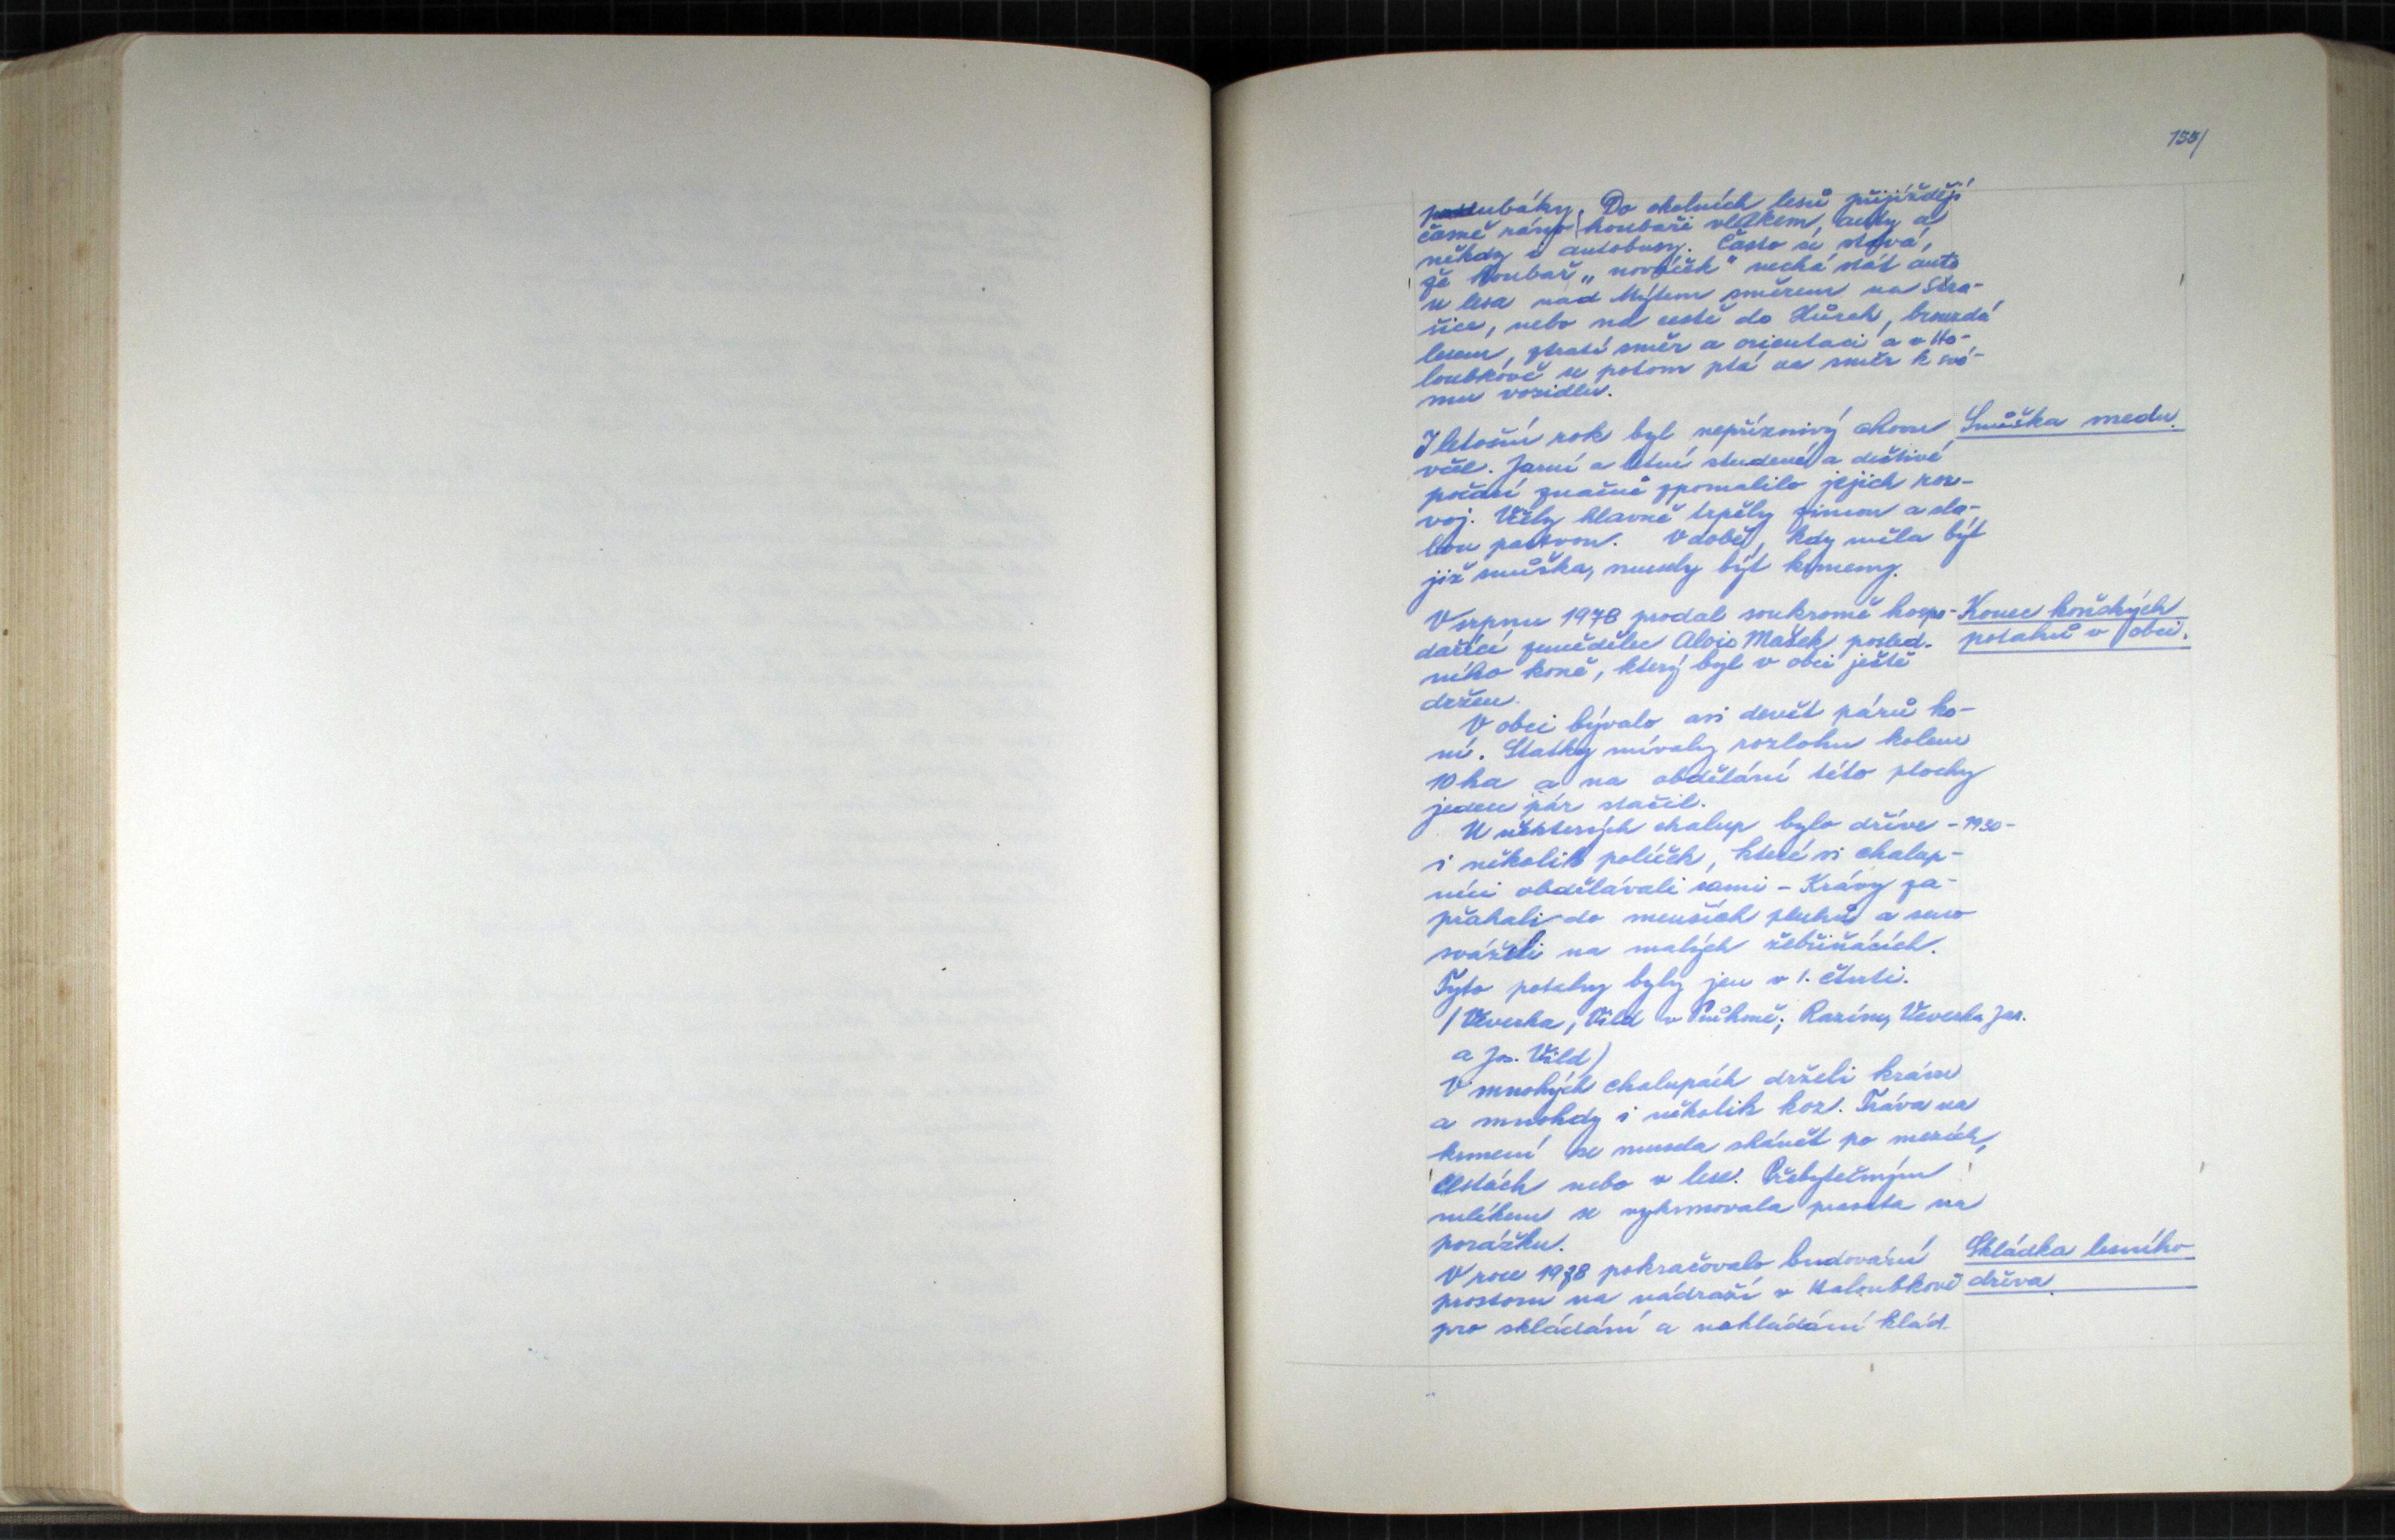 155/
ubáky. Do okolních lesů přijíždějí
časně ráno houbaři vlakem, auty a
někdy i autobusy. Často se stává,
že houbař „nováček" nechá stát auto
u lesa nad Mýtem směrem na Stra-
šice, nebo na cestě do Hůrek, brouzdá
lesem, ztratí směr a orientaci a v Ho-
loubkově se potom ptá na směr k své-
mu vozidlu.
I letošní rok byl nepříznivý chovu Snůška medu.
včel. Jarní a letní studené a deštivé
počasí značně zpomalilo jejich roz-
voj. Včely hlavně trpěly zimou a sla-
bou pastvou. V době, kdy měla být
již snůška, musely být krmeny.
V srpnu 1978 prodal soukromě hospo- Konec koňských
dařící zemědělec Alois Mašek posled- potahů v obci.
ního koně, který byl v obci ještě
držen.
V obci bývalo asi devět párů ko-
ní. Statky mívaly rozlohu kolem
10 ha a na obdělání této plochy
jeden pár stačil.
U některých chalup bylo dříve - 1930 -
i několik políček, které si chalup-
níci obdělávali sami - Krávy za-
přahali do menších pluhů a seno
sváželi na malých žebřiňácích.
Tyto potahy byly jen v 1. čtvrti.
/Veverka, Vild v Průhoně, Razím, Veverka Jar.
a Jos. Vild)
V mnohých chalupách drželi krávu
a mnohdy i několik koz. Tráva na
krmení se musela shánět po mezích,
cestách nebo v lese. Přebytečným
mlékem se vykrmovala prasata na
porážku.
V roce 1978 pokračovalo budování Skládka lesního
prostoru na nádraží v Holoubkově dřeva.
pro skládání a nakládání klád.